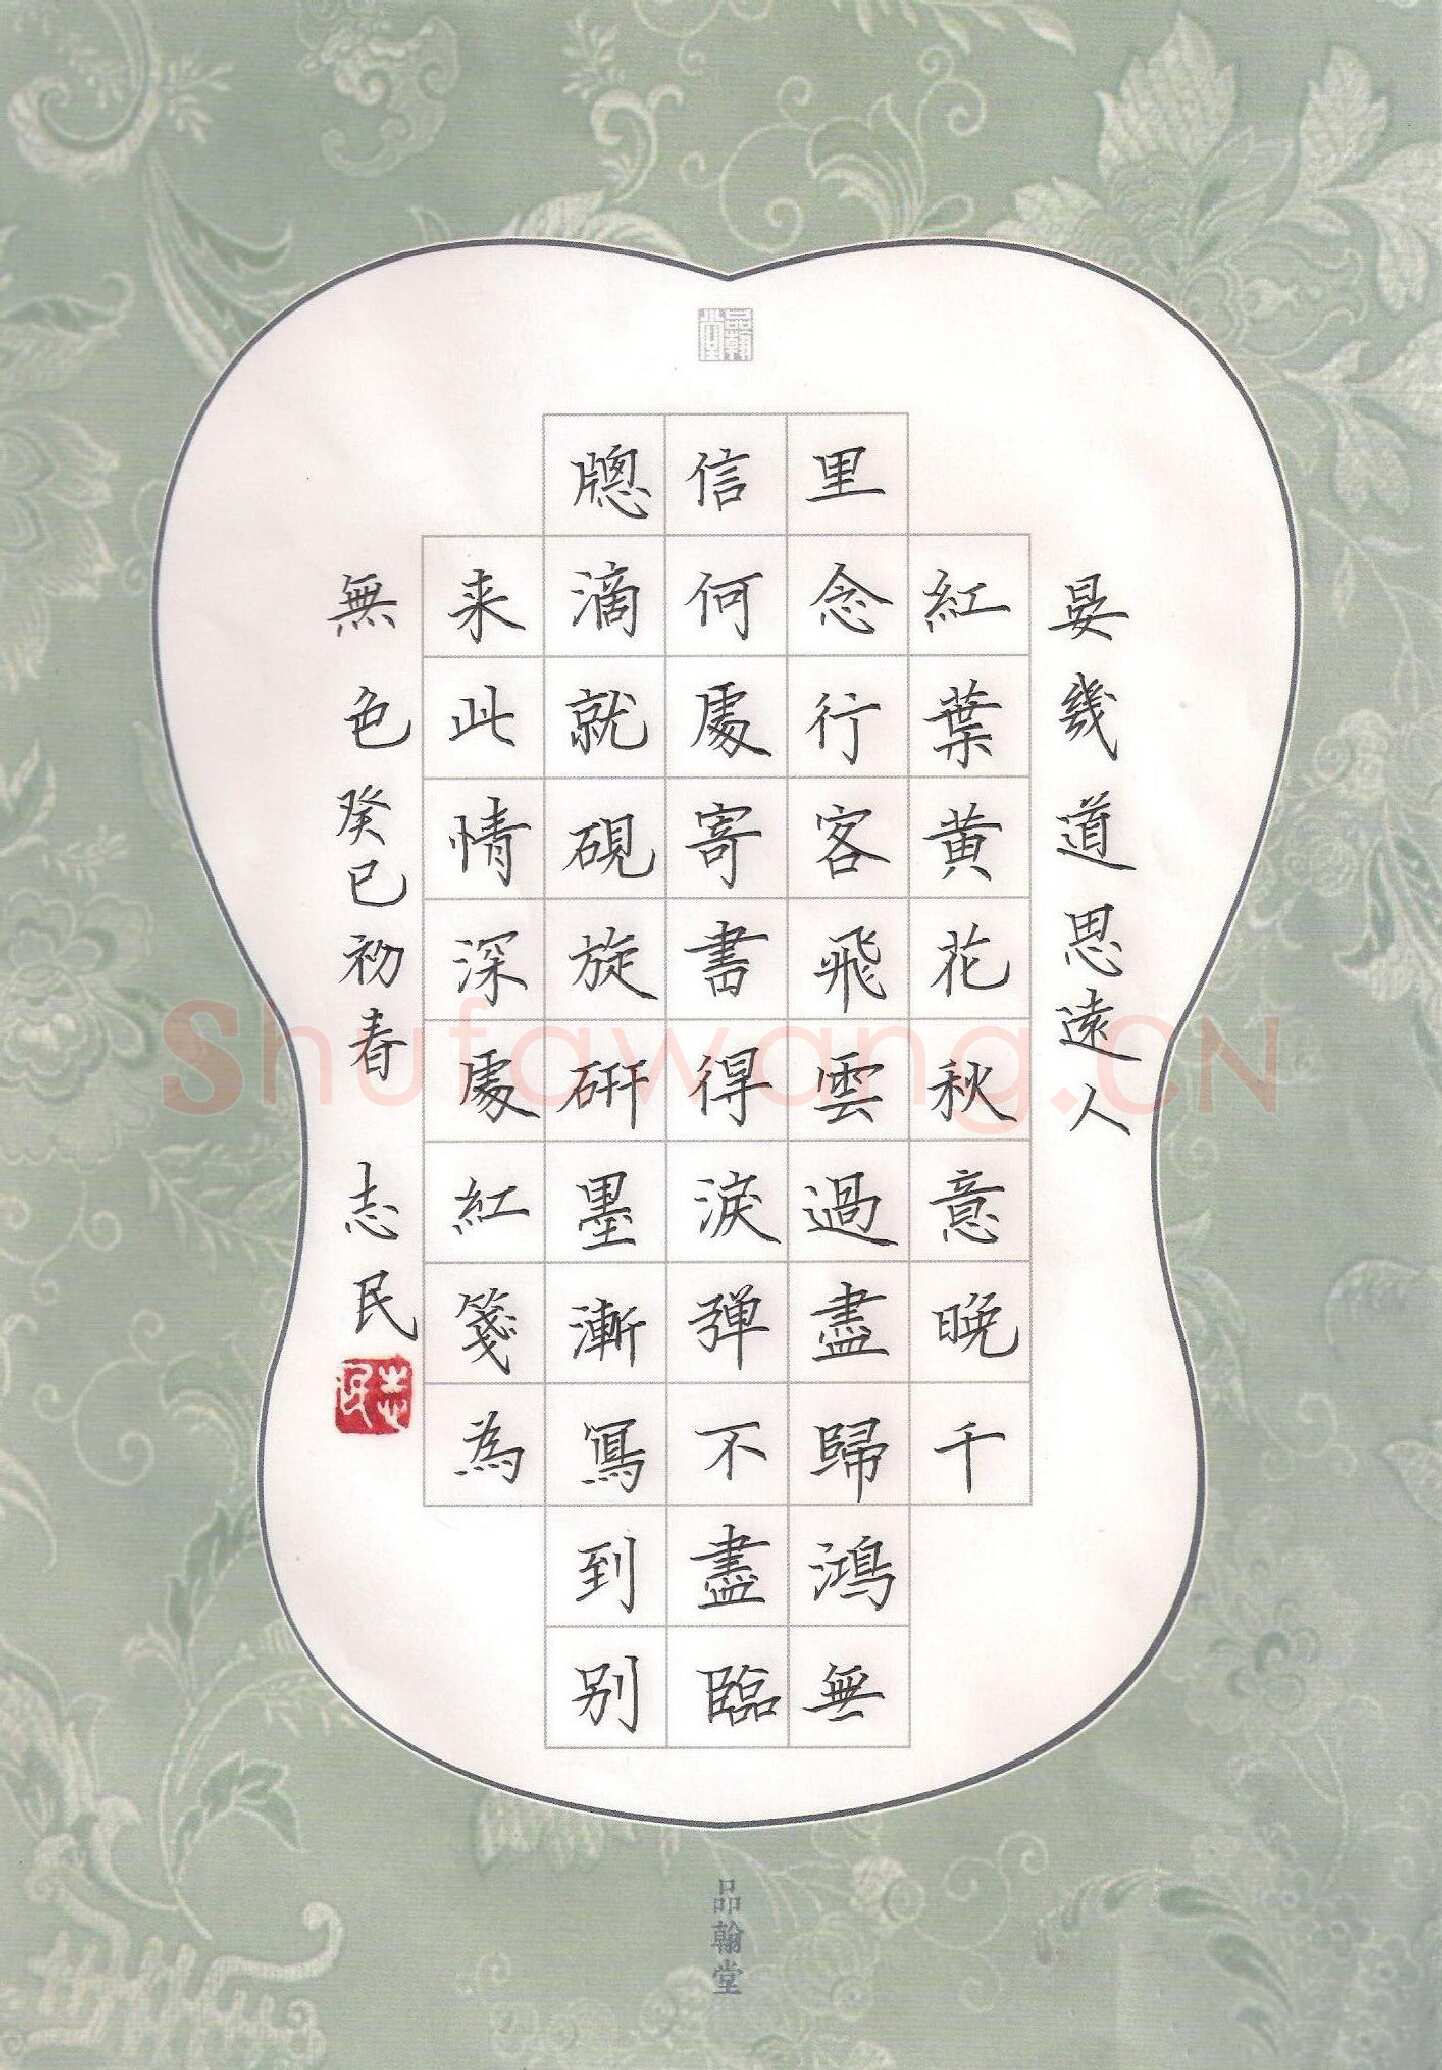 晏幾道思遠人
紅葉黄花秋意晚千
里念行客飛雲過盡歸鴻無
信何處寄書得淚弹不盡臨
牎滴就硯旋研墨漸寫到别
来此情深處紅箋為
無色癸巳初春 志民
志民
品翰堂
品翰堂
Shufawang.CN